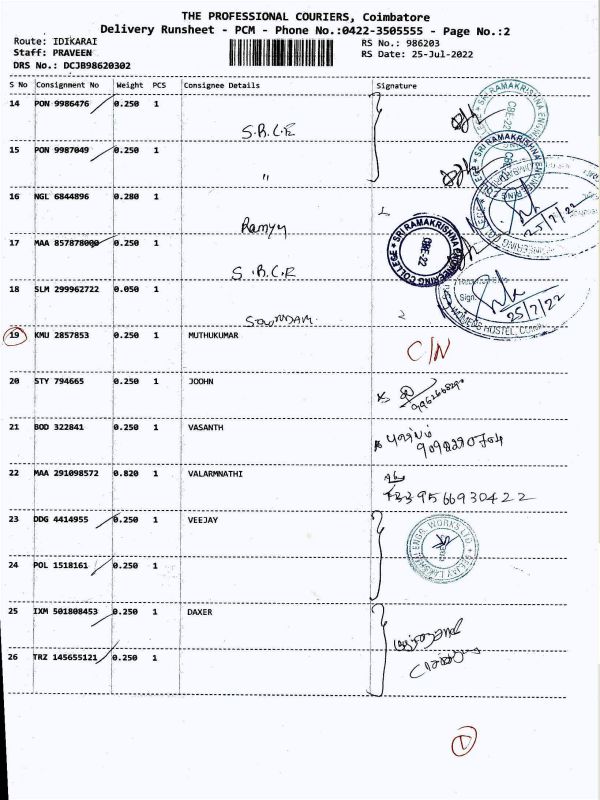 THE PROFESSIONAL COURIERS, Coimbatore
Delivery Runsheet - PCM - Phone No.:0422-3505555 - Page No.:2
Route: IDIKARAI
RS No.: 986203
Staff: PRAVEEN
RS Date: 25-Jul-2022
DRS No.: DCJB98620302
S No Consignment No Weight PCS Consignee Details Signature
14 PON 9986476 0.250 1
S.R.C.E
15 PON 9987049 0.250 1
"
16 NGL 6844896 0.280 1
Ramya
17 MAA 857878000 0.250 1
S.R.C.E
18 SLM 299962722 0.050 1
19 KMU 2857853 0.250 1 MUTHUKUMAR
C/N
20 STY 794665 0.250 1 JOOHN
21 BOD 322841 0.250 1 VASANTH
22 MAA 291098572 0.820 1 VALARMNATHI
9566930422
23 DDG 4414955 0.250 1 VEEJAY
24 POL 1518161 0.250 1
25 IXM 501808453 0.250 1 DAXER
26 TRZ 145655121 0.250 1
SRI RAMAKRISHNA ENGINEERING COLLEGE
CBE-22
25/7/22
25/7/22
1